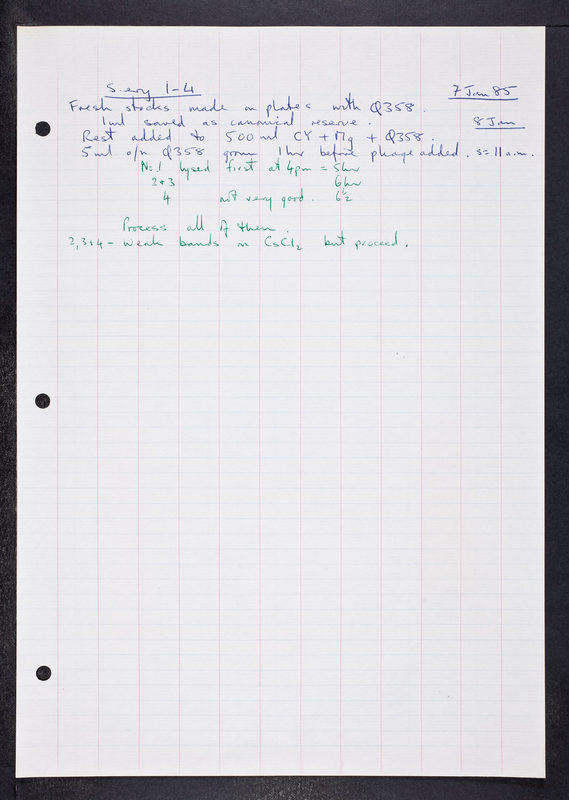 S. ery 1-4
7 Jan 85
Fresh stocks made on plates with Q358.
1ml saved as canonical reserve.
8 Jan
Rest added to 500ml CY + Mg + Q358.
5ml o/n Q358 grown 1hr before phage added. s = 11 a.m.
No. 1 lysed first at 4pm = 5hr
2+3 6hr
4 not very good. 6½
Process all of them.
2,3+4 - weak bands on CsCl2 but proceed.